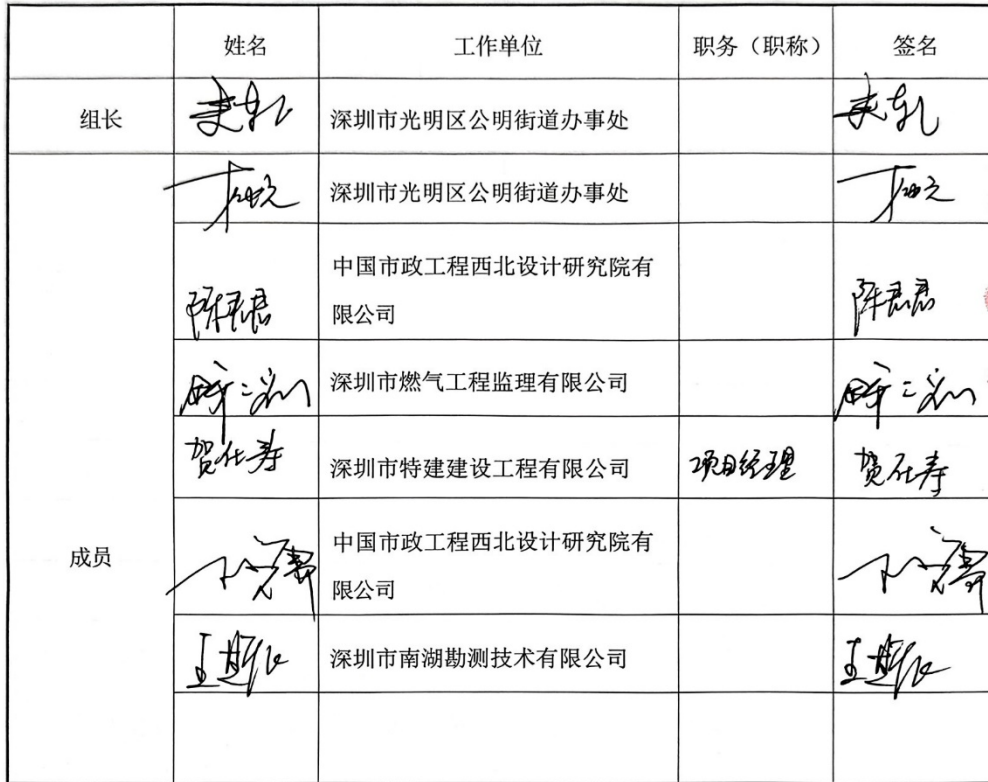 姓名 工作单位 职务（职称） 签名
组长 深圳市光明区公明街道办事处
深圳市光明区公明街道办事处
中国市政工程西北设计研究院有
陈君君 陈君君
限公司
深圳市燃气工程监理有限公司
贺仕寿 深圳市特建建设工程有限公司 项目经理 贺仕寿
中国市政工程西北设计研究院有
成员
限公司
深圳市南湖勘测技术有限公司